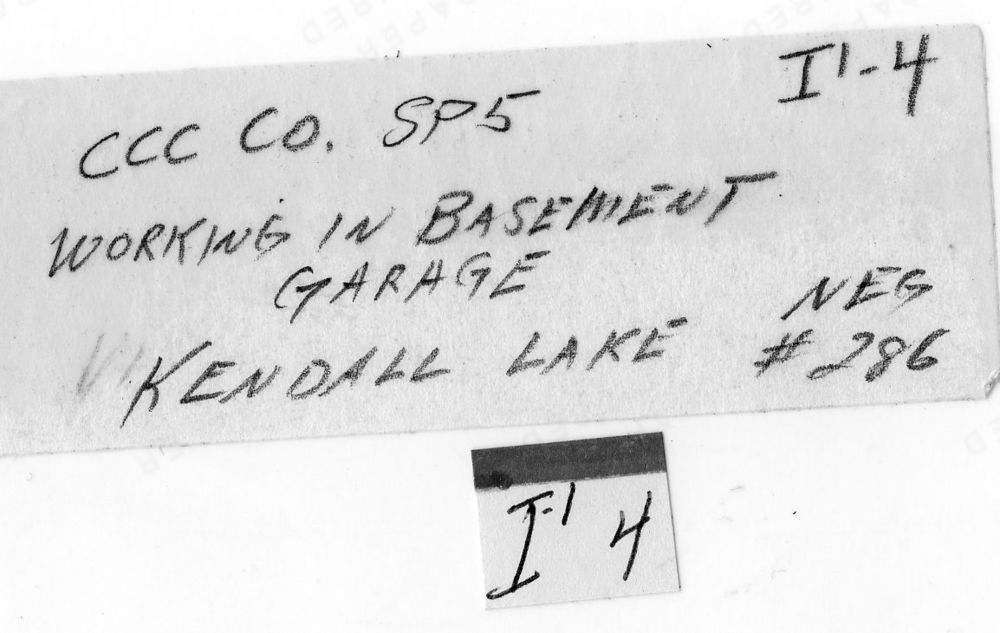 I'-4
CCC CO. SP5
WORKING IN BASEMENT
GARAGE
KENDALL LAKE
NEG
#286
I'4